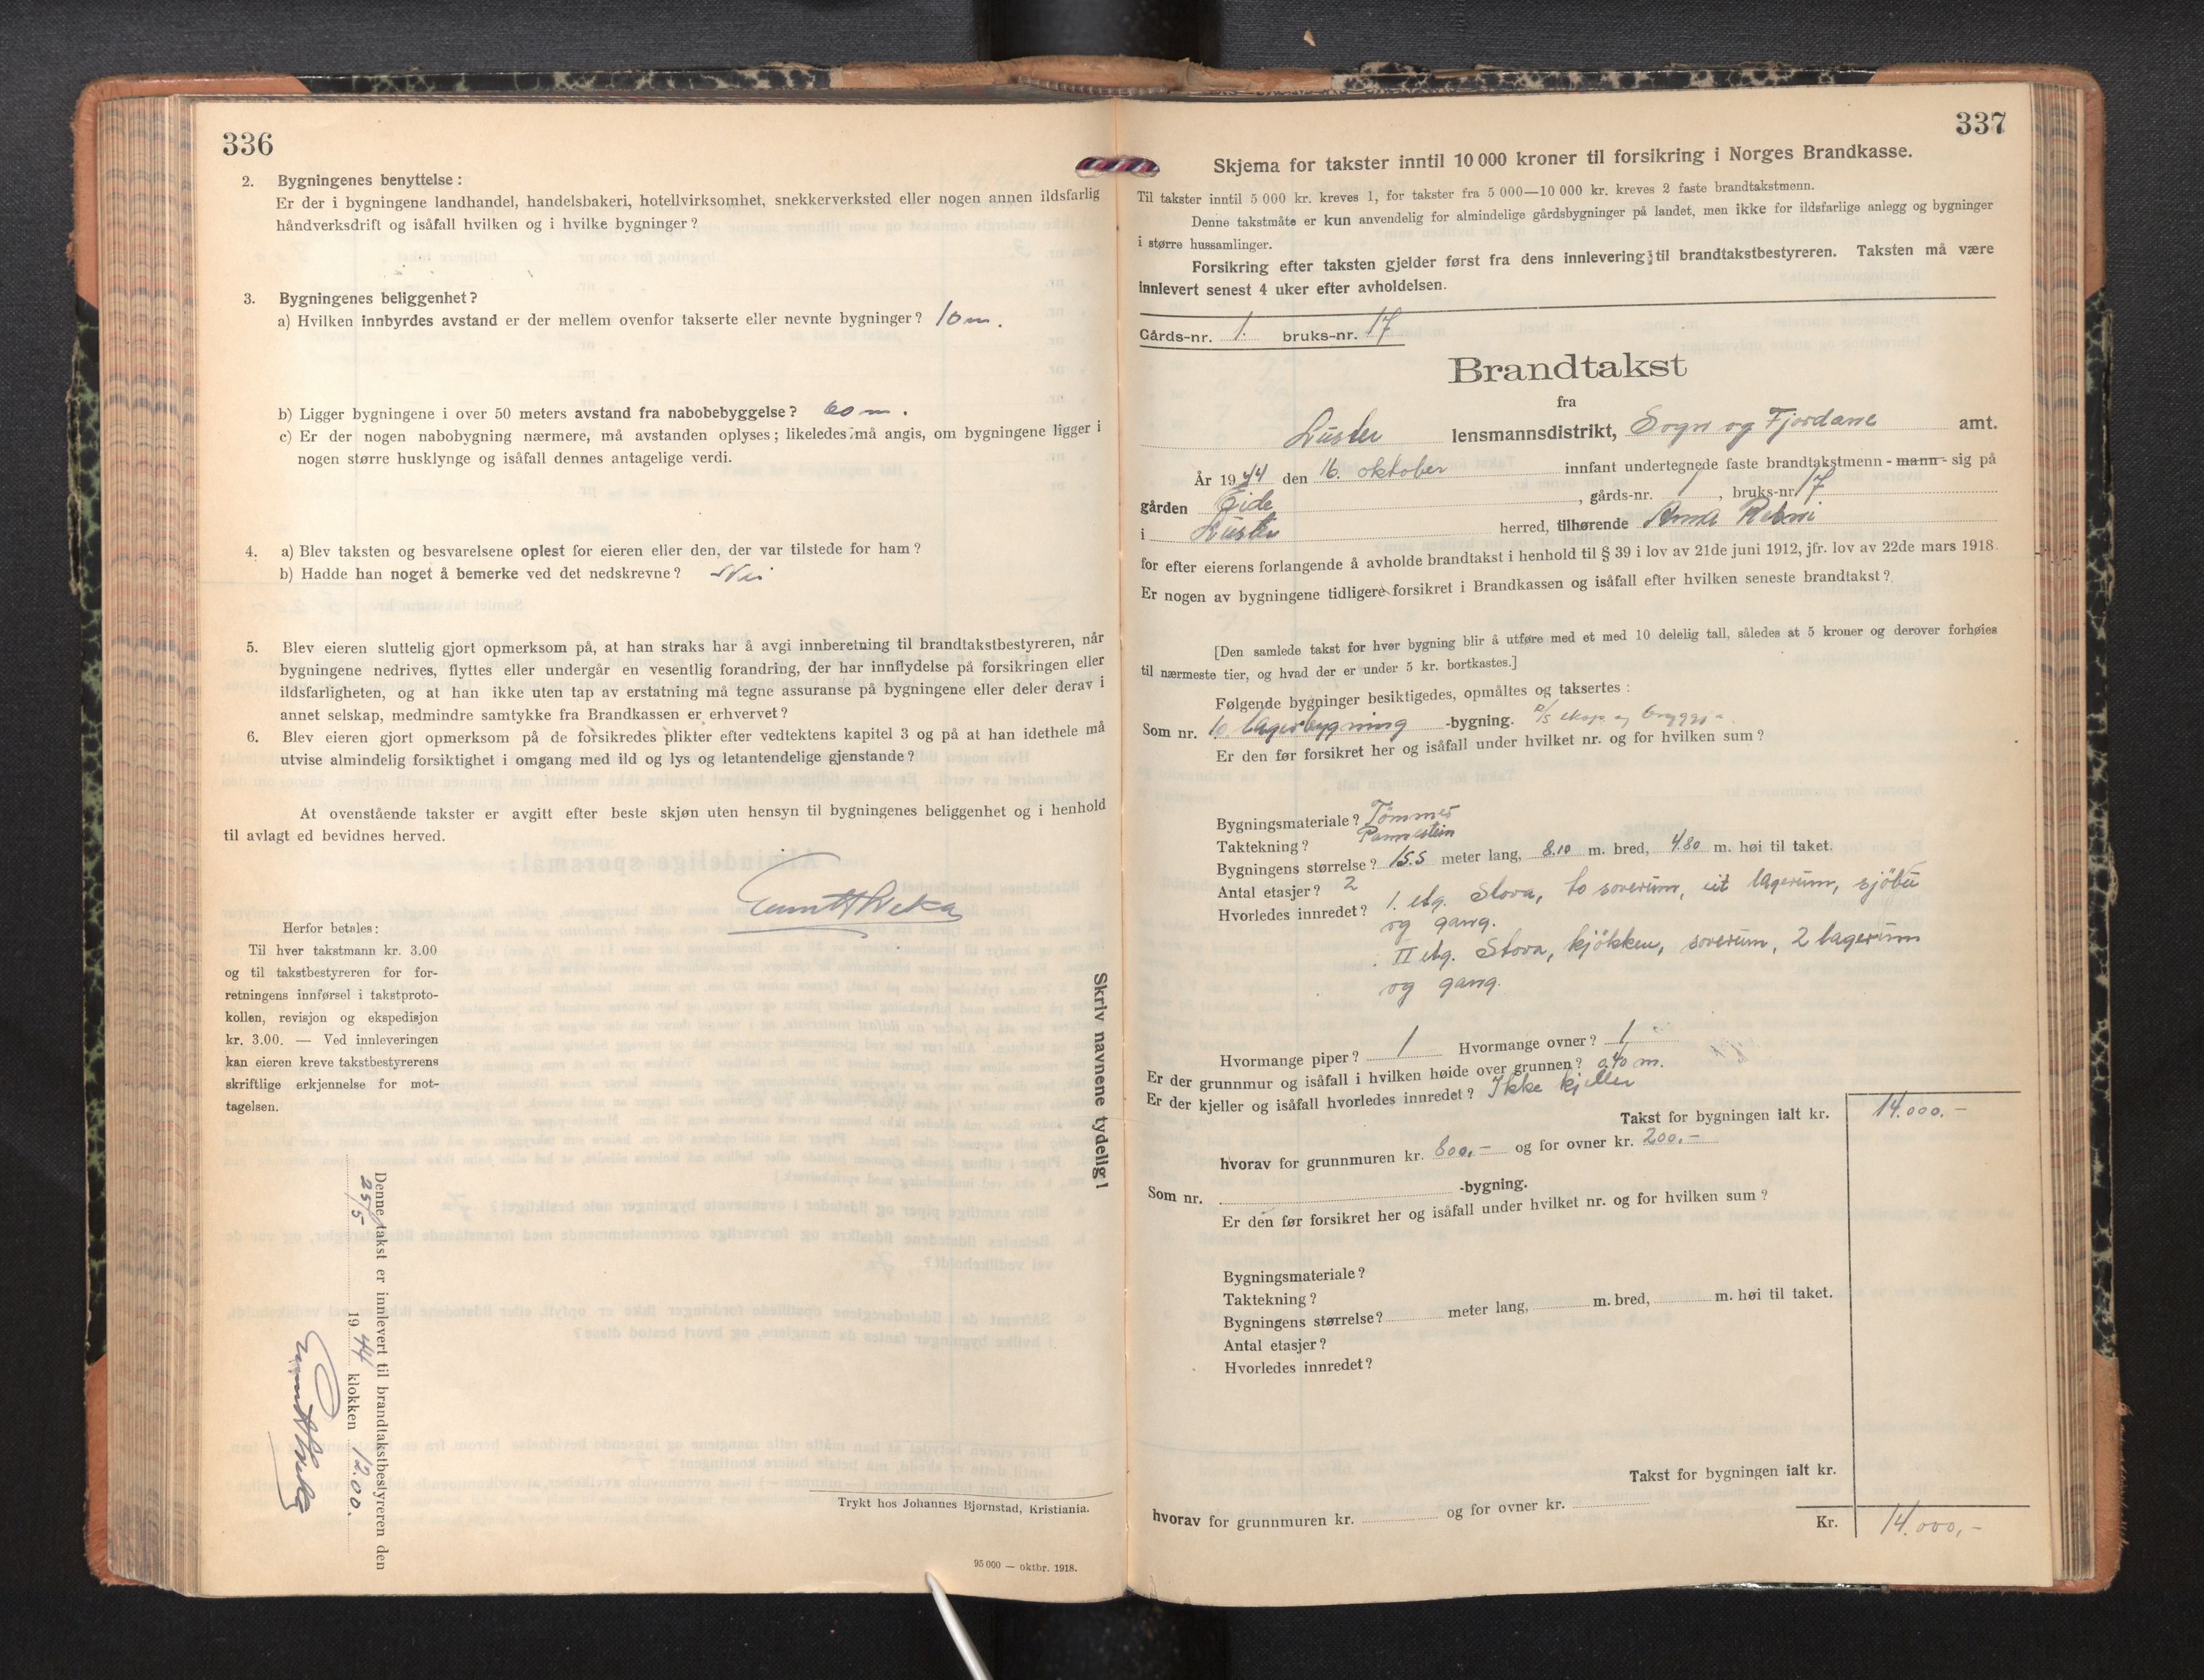 336
2. Bygningenes benyttelse:
Er der i bygningene landhandel, handelsbakeri, hotellvirksomhet, snekkerverksted eller nogen annen ildsfarlig
håndverksdrift og isåfall hvilken og i hvilke bygninger?
3. Bygningenes beliggenhet?
a) Hvilken innbyrdes avstand er der mellem ovenfor takserte eller nevnte bygninger? 10 m.
b) Ligger bygningene i over 50 meters avstand fra nabobebyggelse? 60 m.
c) Er der nogen nabobygning nærmere, må avstanden oplyses; likeledes må angis, om bygningene ligger i
nogen større husklynge og isåfall dennes antagelige verdi.
4. a) Blev taksten og besvarelsene oplest for eieren eller den, der var tilstede for ham?
b) Hadde han noget å bemerke ved det nedskrevne? Nei
5. Blev eieren sluttelig gjort opmerksom på, at han straks har å avgi innberetning til brandtakstbestyreren, når
bygningene nedrives, flyttes eller undergår en vesentlig forandring, der har innflydelse på forsikringen eller
ildsfarligheten, og at han ikke uten tap av erstatning må tegne assuranse på bygningene eller deler derav i
annet selskap, medmindre samtykke fra Brandkassen er erhvervet?
6. Blev eieren gjort opmerksom på de forsikredes plikter efter vedtektens kapitel 3 og på at han idethele må
utvise almindelig forsiktighet i omgang med ild og lys og letantendelige gjenstande?
At ovenstående takster er avgitt efter beste skjøn uten hensyn til bygningenes beliggenhet og i henhold
til avlagt ed bevidnes herved.
Herfor betales:
Til hver takstmann kr. 3.00
og til takstbestyreren for for-
retningens innførsel i takstproto-
kollen, revisjon og ekspedisjon
kr. 3.00. — Ved innleveringen
kan eieren kreve takstbestyrerens
skriftlige erkjennelse for mot-
tagelsen.
Skriv navnene tydelig!
Denne takst er innlevert til brandtakstbestyreren den
25/5 1944 klokken 12.00.
Trykt hos Johannes Bjørnstad, Kristiania.
95 000 — oktbr. 1918.
337
Skjema for takster inntil 10 000 kroner til forsikring i Norges Brandkasse.
Til takster inntil 5 000 kr. kreves 1, for takster fra 5 000—10 000 kr. kreves 2 faste brandtakstmenn.
Denne takstmåte er kun anvendelig for almindelige gårdsbygninger på landet, men ikke for ildsfarlige anlegg og bygninger
i større hussamlinger.
Forsikring efter taksten gjelder først fra dens innlevering til brandtakstbestyreren. Taksten må være
innlevert senest 4 uker efter avholdelsen.
Gårds-nr. 1. bruks-nr. 17
Brandtakst
fra
Luster lensmannsdistrikt, Sogn og Fjordane amt.
År 1944 den 16. oktober innfant undertegnede faste brandtakstmenn - mann - sig på
gården Eide, gårds-nr. 1, bruks-nr. 17
i Luster herred, tilhørende Anna
for efter eierens forlangende å avholde brandtakst i henhold til § 39 i lov av 21de juni 1912, jfr. lov av 22de mars 1918.
Er nogen av bygningene tidligere forsikret i Brandkassen og isåfall efter hvilken seneste brandtakst?
[Den samlede takst for hver bygning blir å utføre med et med 10 delelig tall, således at 5 kroner og derover forhøies
til nærmeste tier, og hvad der er under 5 kr. bortkastes.]
Følgende bygninger besiktigedes, opmåltes og taksertes:
Som nr. lagerbygning -bygning.
Er den før forsikret her og isåfall under hvilket nr. og for hvilken sum?
Bygningsmateriale? Tømmer
Taktekning? Pannestein
Bygningens størrelse? 15.5 meter lang, 8.10 m. bred, 4.80 m. høi til taket.
Antal etasjer? 2
Hvorledes innredet? 1. etg. Stova, to soverum, eit lagerum, sjöbu
og gang.
II etg. Stova, kjökken, soverum, 2 lagerum
og gang.
Hvormange piper? 1 Hvormange ovner? 1
Er der grunnmur og isåfall i hvilken høide over grunnen? 0,40 m.
Er der kjeller og isåfall hvorledes innredet? Ikke kjeller
Takst for bygningen ialt kr. 14.000.-
hvorav for grunnmuren kr. 800,- og for ovner kr. 200.-
Som nr. -bygning.
Er den før forsikret her og isåfall under hvilket nr. og for hvilken sum?
Bygningsmateriale?
Taktekning?
Bygningens størrelse? meter lang, m. bred, m. høi til taket.
Antal etasjer?
Hvorledes innredet?
Takst for bygningen ialt kr.
hvorav for grunnmuren kr. og for ovner kr.
Kr. 14.000,-